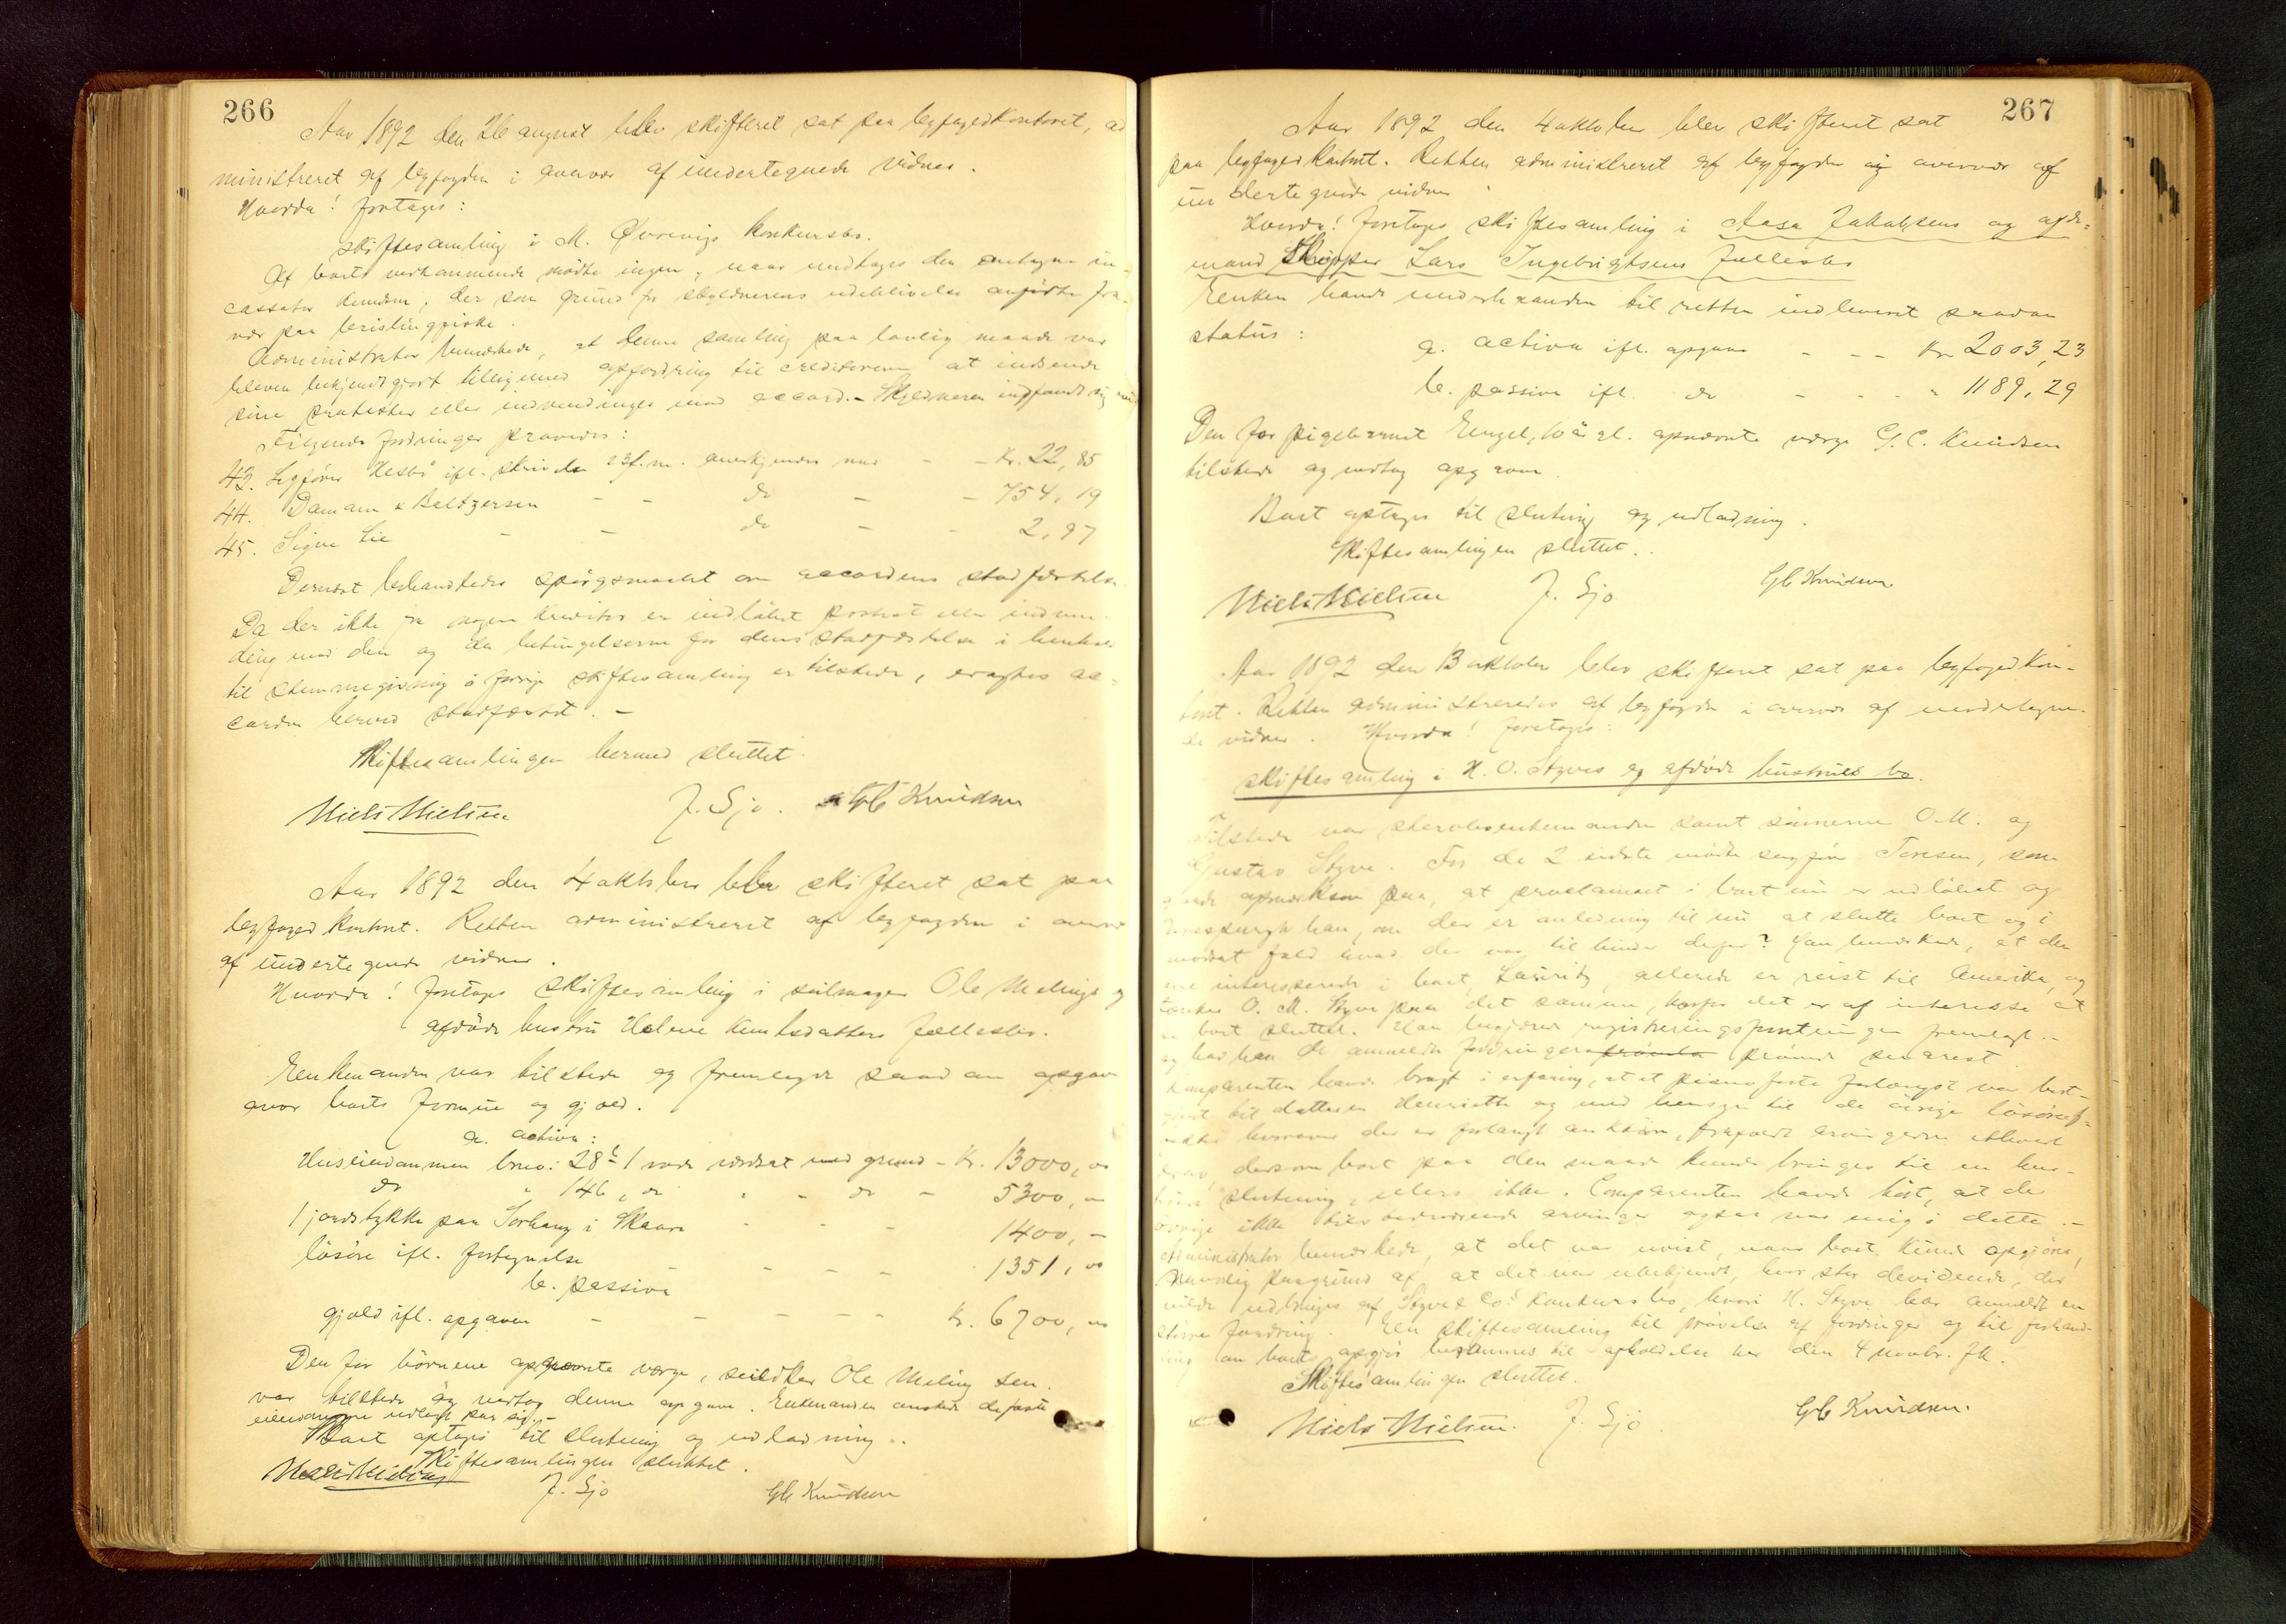 266
Aar 1892 den 26 august blev skifteret sat paa byfogedkontoret, ad
ministreret af byfogden i overvær af undertegnede vidner.
Hvorda! foretoges:
skiftesamling i M. Øvrevigs konkursbo.
Af boets vedkommende mødte ingen, naar undtages den antagne in-
cassator Knudsen, der som grund for skyldnerens udeblivelse anførte fra-
vær paa brislingfiske.
Administrator bemærkede, at denne samling paa lovlig maade var
bleven bekjendtgjort tilligemed opfordring til creditorerne at indsende
sine protester eller indvendinger mod accord. - Skyldneren indfandt sig
Følgende fordringer prøvedes:
43. Sagfører Hesbø ifl. skrivelse 23 f.m. anerkjendes med - - Kr. 22,85
44. Damann & Baltzersen - - do - - 754,19
45. Signe Lie - - do - - 2,97
Dernæst behandledes spørgsmaalet om accordens stadfæstelse.
Da der ikke fra nogen kreditor er indløbet protest eller indven-
ding mod den og da betingelserne for dens stadfæstelse i henhold
til stemmegivning i forrige skiftesamling er tilstede, eragtes ac-
corden herved stadfæstet. -
Skiftesamlingen hermed sluttet.
Niels Nielsen J. Sjo. GC Knudsen
Aar 1892 den 4 oktober blev skifteret sat paa
byfogedkontoret. Retten administreret af byfogden i overvær
af undertegnede vidner.
Hvorda! foretoges skiftesamling i seilmager Ole Melings og
afdøde hustru Helene Knudsdatters fællesbo.
Enkemanden var tilstede og fremlagde saadan opgave
over boets formue og gjæld.
a. activa:
Huseiendommen brev: 28b 1 rode værdsat med grund - Kr. 13000,00
do " 146, do " - do - 5300, "
1 jordstykke paa Sørhaug i Skaare - - - 1400, -
løsøre ifl. fortegnelse - - - - 1351,00
b. passiva
gjæld ifl. opgaven - - - - - Kr. 6700,00
Den for børnene opnævnte værge, Ole Meling sen.
var tilstede og vedtog denne opgave. Enkemanden ønskede de faste
eiendomme udlagt paa sig. -
Boet optoges til slutning og udlodning.
Skiftesamlingen sluttet.
Niels Nielsen J. Sjo GC Knudsen
267
Aar 1892 den 4 oktober blev skifteret sat
paa byfogedkontoret. Retten administreret af byfogden og overvær af
undertegnede vidner
Hvorda! foretoges skiftesamling i Aasa Jakobsens og afdø-
mand Skipper Lars Ingebrigtsens fællesbo
Enken havde underhaanden til retten indleveret saadan
status:
a. activa ifl. opgave - - - Kr 2003,23
b. passiva ifl. do - - - " 1189,29
Den for pigebarnet Engel, 10 år gl. opnævnte værge G. C. Knudsen
tilstede og vedtog opgaven.
Boet optoges til slutning og udlodning.
Skiftesamlingen sluttet.
Niels Nielsen J. Sjo GC Knudsen
Aar 1892 den 13 oktober blev skifteret sat paa byfogedkon-
toret. Retten administreredes af byfogden i overvær af undertegne-
de vidner. Hvorda! foretoges:
skiftesamling i H. O. Styves og afdøde hustrues bo.
Tilstede var sterbosenkemanden samt sønnerne O. M. og
Gustav Styve. For de 2 sidste mødte sagfører Toresen, som
gjorde opmærksom paa, at proclamaet i boet nu er udløbet og
forespurgte han, om der er anledning til nu at slutte boet og i
modsat fald hvad der var til hinder derfor? Han bemærkede, at den
ene interesserede i boet, Lauritz, allerede er reist til Amerika, og
tænker O. M. Styve paa det samme, hvorfor det er af interesse at
faa boet sluttet. Han begjærer registreringsforretningen fremlagt. -
og bad han de anmeldte fordringer prøvede snarest
Comparenten havde bragt i erfaring, at et pianoforte forlængst var bort-
givet til datteren Henriette og med hensyn til de øvrige løsøreef-
fekter hvorover der er forlangt auktion, frafaldt arvingerne ethvert
krav, dersom boet paa den maade kunde bringes til en hur-
tigere slutning, ellers ikke. Comparenten havde hørt, at de
øvrige ikke tilstedeværende arvinger ogsaa var enig i dette. -
Administrator bemærkede, at det var uvist, naar boet kunde opgjøres,
navnlig paagrund af, at det var ubekjendt, hvor stor devidende, der
vilde udbringes af Styve & Co's konkursbo, hvori H. Styve har anmeldt en
større fordring. En skiftesamling til prøvelse af fordringer og til forhand-
ling om boets opgjør berammes til afholdelse her den 4 novbr. fk.
Skiftesamlingen sluttet.
Niels Nielsen. J. Sjo. GC Knudsen.